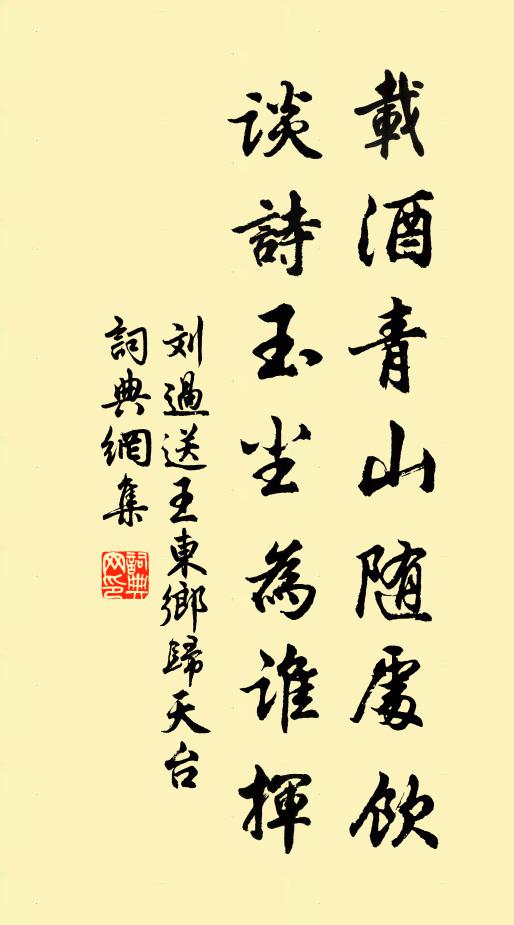 載酒青山随處飲
談詩玉尘為誰揮
刘過送王東鄉歸天台
詞典網集
詞典网印